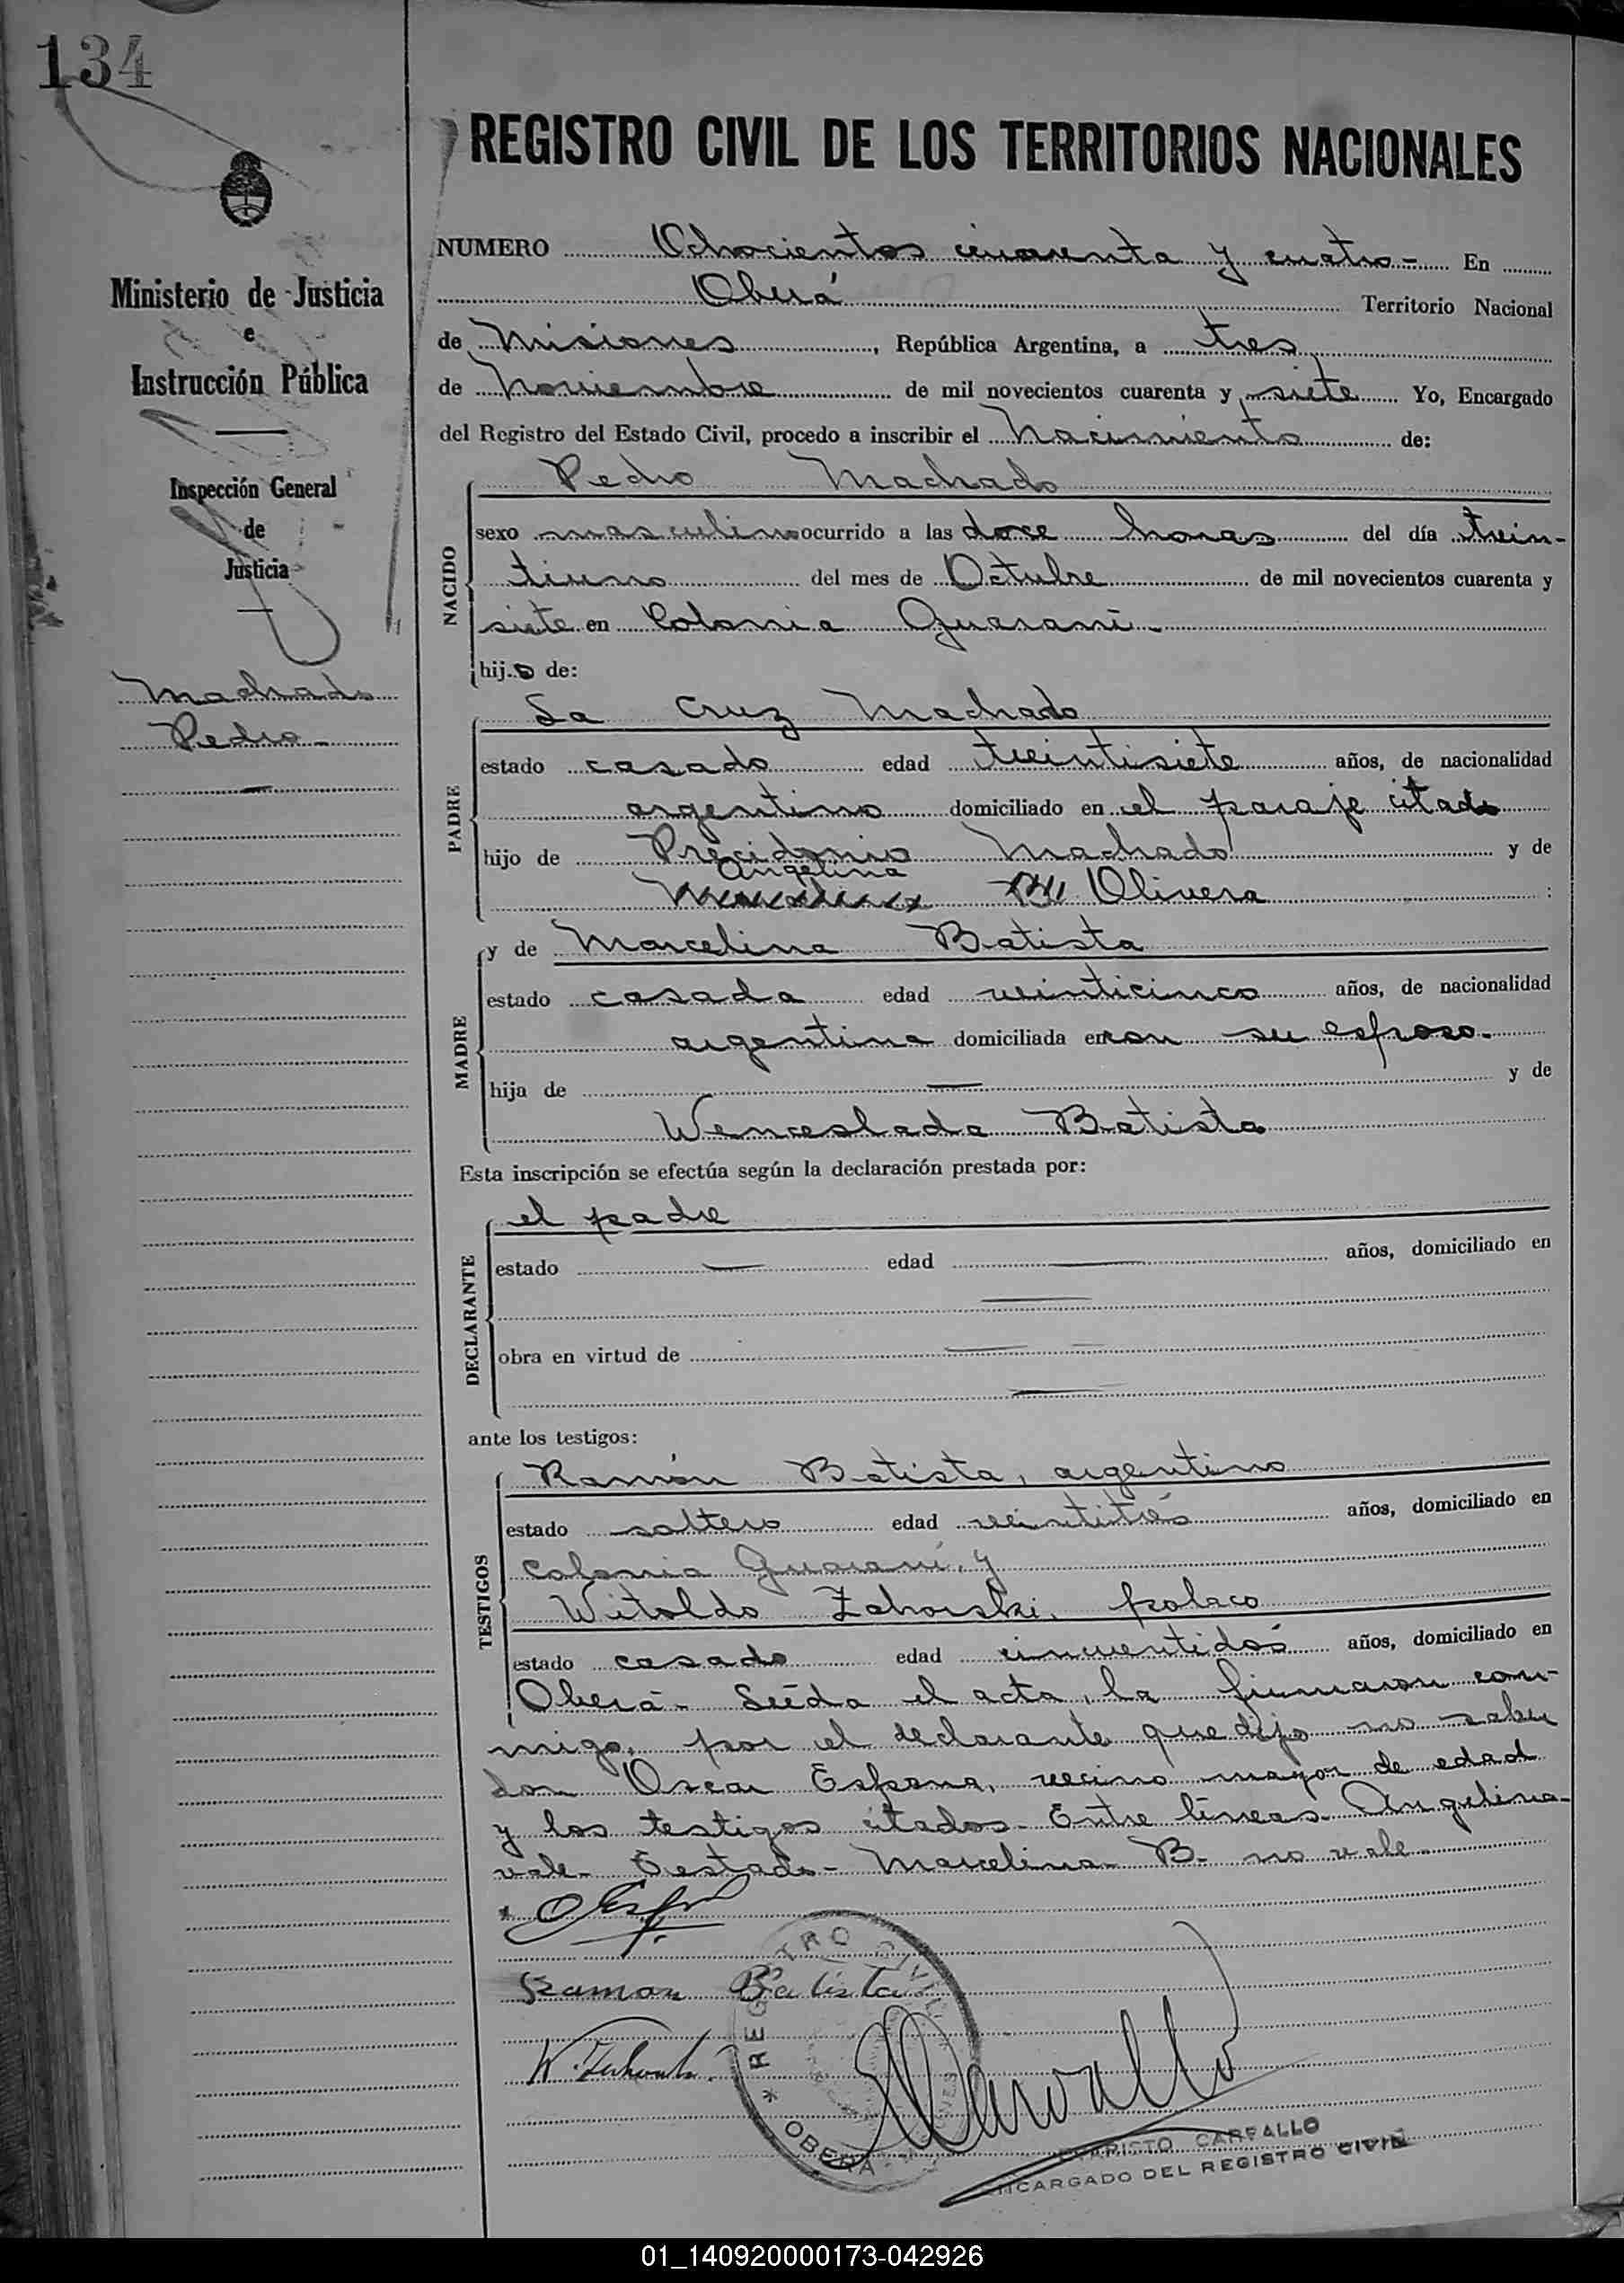 134
REGISTRO CIVIL DE LOS TERRITORIOS NACIONALES
Ministerio de Justicia
e
Instrucción Pública
Inspección General
de
Justicia
Machado
Pedro
NUMERO Ochocientos cuarenta y cuatro - En
Oberá Territorio Nacional
de Misiones, República Argentina, a tres
de Noviembre de mil novecientos cuarenta y siete Yo, Encargado
del Registro del Estado Civil, procedo a inscribir el Nacimiento de:
NACIDO
Pedro Machado
sexo masculino ocurrido a las doce horas del día trein-
tiuno del mes de Octubre de mil novecientos cuarenta y
siete en Colonia Guaraní -
hijo de:
PADRE
La Cruz Machado
estado casado edad treintisiete años, de nacionalidad
argentino domiciliado en el paraje citado
hijo de Precidonio Machado y de
Angelina
Olivera
MADRE
y de Marcelina Batista
estado casada edad veinticinco años, de nacionalidad
argentina domiciliada en con su esposo.
hija de — y de
Wenceslada Batista
Esta inscripción se efectúa según la declaración prestada por:
DECLARANTE
el padre
estado — edad — años, domiciliado en
obra en virtud de —
ante los testigos:
TESTIGOS
Ramón Batista, argentino
estado soltero edad veintitrés años, domiciliado en
Colonia Guaraní, y
Witoldo Zahorski, polaco
estado casado edad cincuentidós años, domiciliado en
Oberá - Leída el acta, la firmaron con-
migo, por el declarante que dijo no saber
don Oscar Espona, vecino mayor de edad
y los testigos citados - Entre líneas - Angelina -
vale - Testado - Marcelina B - no vale -
Ramon Batista
REGISTRO CIVIL
* OBERA
Carvallo
EVARISTO CARVALLO
ENCARGADO DEL REGISTRO CIVIL
01_140920000173-042926